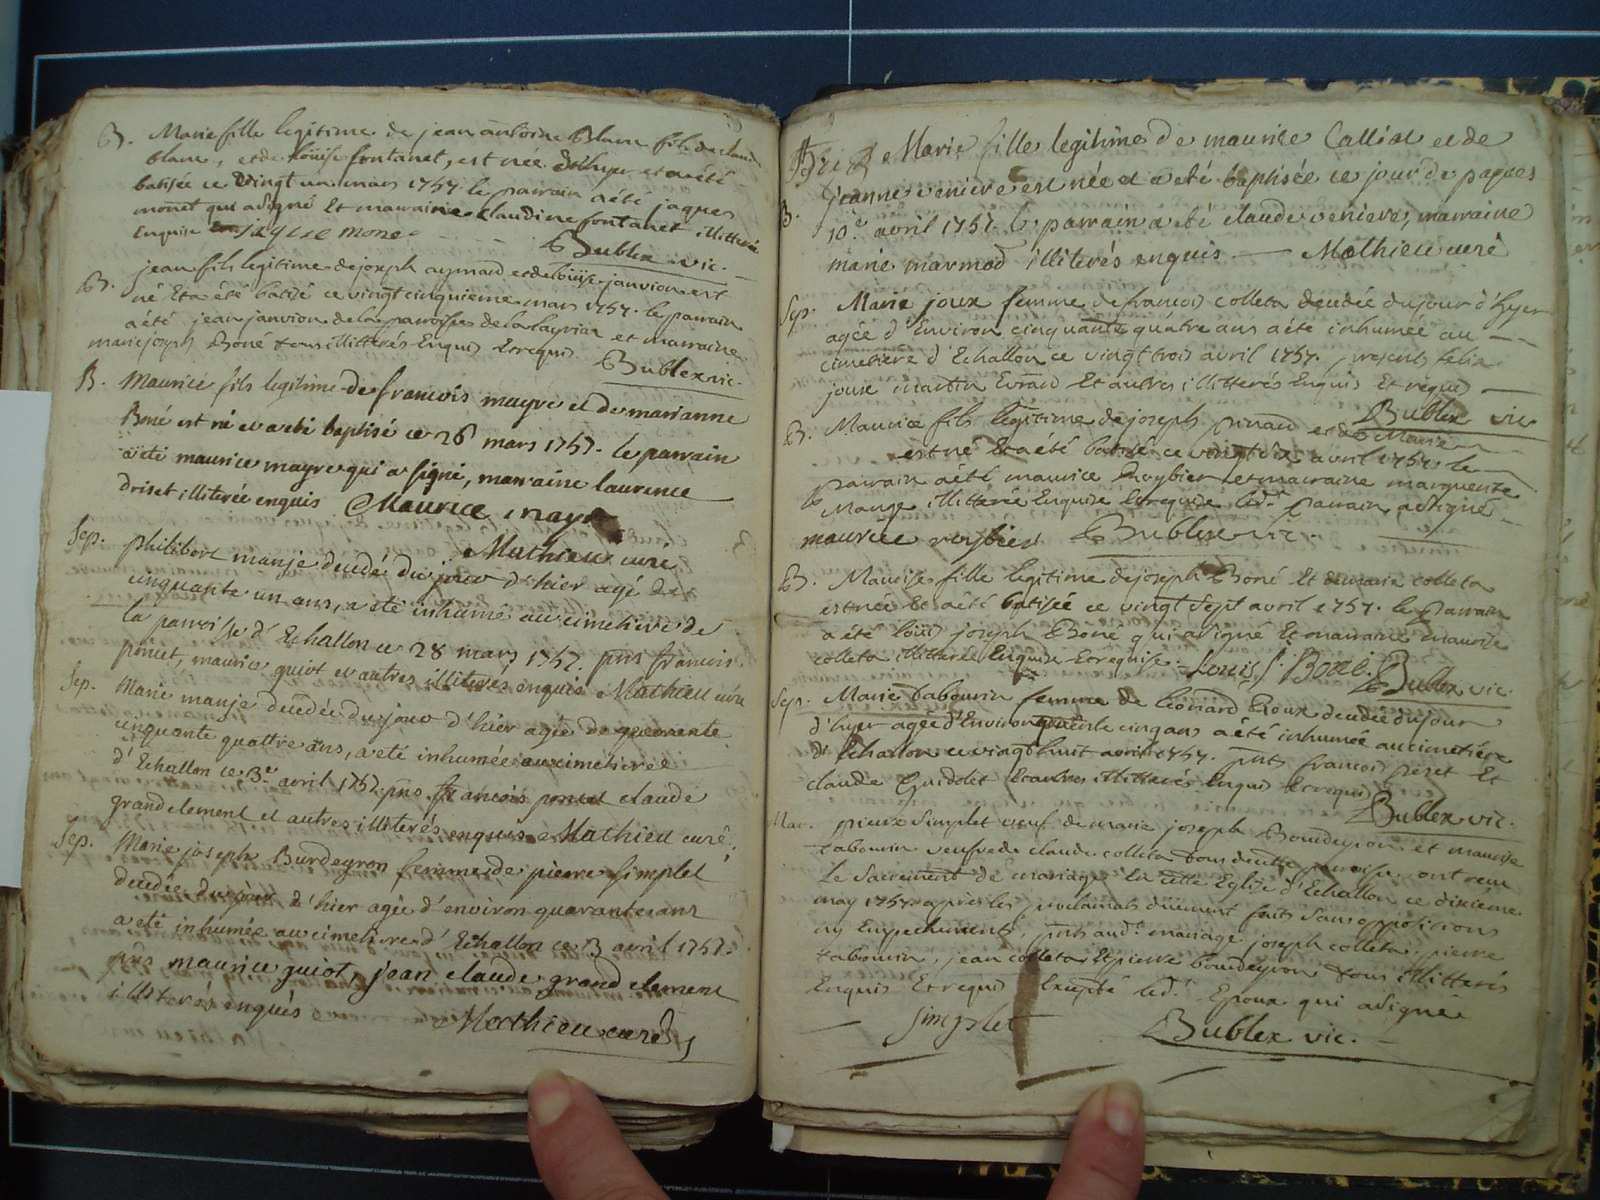 B. Marie fille legitime de jean antoine Blanc fils de claude
blanc, et de loüise fontanet, est née et a eté
batisée ce vingt un mars 1757 le parrain a été jaques
monet qui a signé Et marraine claudine fontanet illitterée
Enquise jaque mone
Bublex vic.
B. jean fils legitime de joseph aymard et de loüise janvion est
né Et a été batisé ce vingt cinquieme mars 1757. le parrain
a été jean janvion de la paroisse de et marraine
marie joseph Boné tous illitterés Enquis Et requis
Bublex vic.
B. Maurice fils legitime de francois mayre et de marianne
Boné est né et a eté baptisé ce 26 mars 1757. le parrain
a eté maurice mayre qui a signé, marraine laurence
driset illiterée enquis Maurice mayre
Mathieu curé
Sep. philibert manje decedé du jour d'hier agé de
cinquante un ans, a eté inhumé au cimetiere de
la paroisse d'Echallon ce 28 mars 1757. pnts francois
poncet, maurice guiot et autres illiterés enquis Mathieu curé
Sep. Marie manje decedée du jour d'hier agée de
cinquante quattre ans, a eté inhumée au cimetiere
d'Echallon ce 3e avril 1757 pns francois poncet claude
grandclement et autres illiterés enquis Mathieu curé
Sep. Marie joseph Burdeyron femme de pierre simplet
decedée du jour d'hier agée d'environ quarante ans
a eté inhumée au cimetiere d'Echallon ce 3 avril 1757.
pns maurice guiot, jean claude grand clement
illiterés enqués Mathieu curé
B. Marie fille legitime de maurice Calliat et de
jeanne veniere est née et a eté baptisée ce jour de paques
10e avril 1757. le parrain a eté claude veniere, marraine
marie marmod illiterés enquis Mathieu curé
Sep. Marie joux femme de francois colleta decedée du jour d'hyer
agée d'Environ cinquante quatre ans a été inhumée au
cimetiere d'Echallon ce vingt trois avril 1757. presents felix
joux martin Evrard Et autres illitterés Enquis Et requis
Bublex vic
B. Maurice fils legitime de joseph et de Marie
est né Et a été batisé ce vingt six avril 1757 le
parrain a été maurice Roybier et marraine marguerite
Mange illitterée Enquise Et requise led. parrain a signé
maurice roybier Bublex vic.
B. Maurise fille legitime de joseph Boné Et de marie colleta
est née Et a été batisée ce vingt sept avril 1757. le parrain
a été loüis joseph Boné qui a signé Et marraine maurise
colleta illitterée Enquise Et requise. Louis J. Boné. Bublex vic.
Sep. Marie tabourin femme de leonard Roux decedée du jour
d'hyer agée d'Environ trente cinq ans a été inhumée au cimetiere
d'Echallon ce vingt huit avril 1757. pnts francois Et
claude Guidolet Et autres illitterés Enquis Et requis
Bublex vic.
Mar. pierre Simplet veuf de marie joseph Bourdeyron et maurise
tabourin veufve de claude colleta tous deux de cette paroisse ont recu
Le Sacrement de mariage En cette Eglise d'Echallon ce dixieme
may 1757 apres les proclamats düement faits sans oppositions
ny Empechements, pnts aud. mariage joseph colleta, pierre
tabourin, jean colleta Et pierre bourdeyron tous illitterés
Enquis Et requis Excepté led. Epoux qui a signé
simplet Bublex vic.